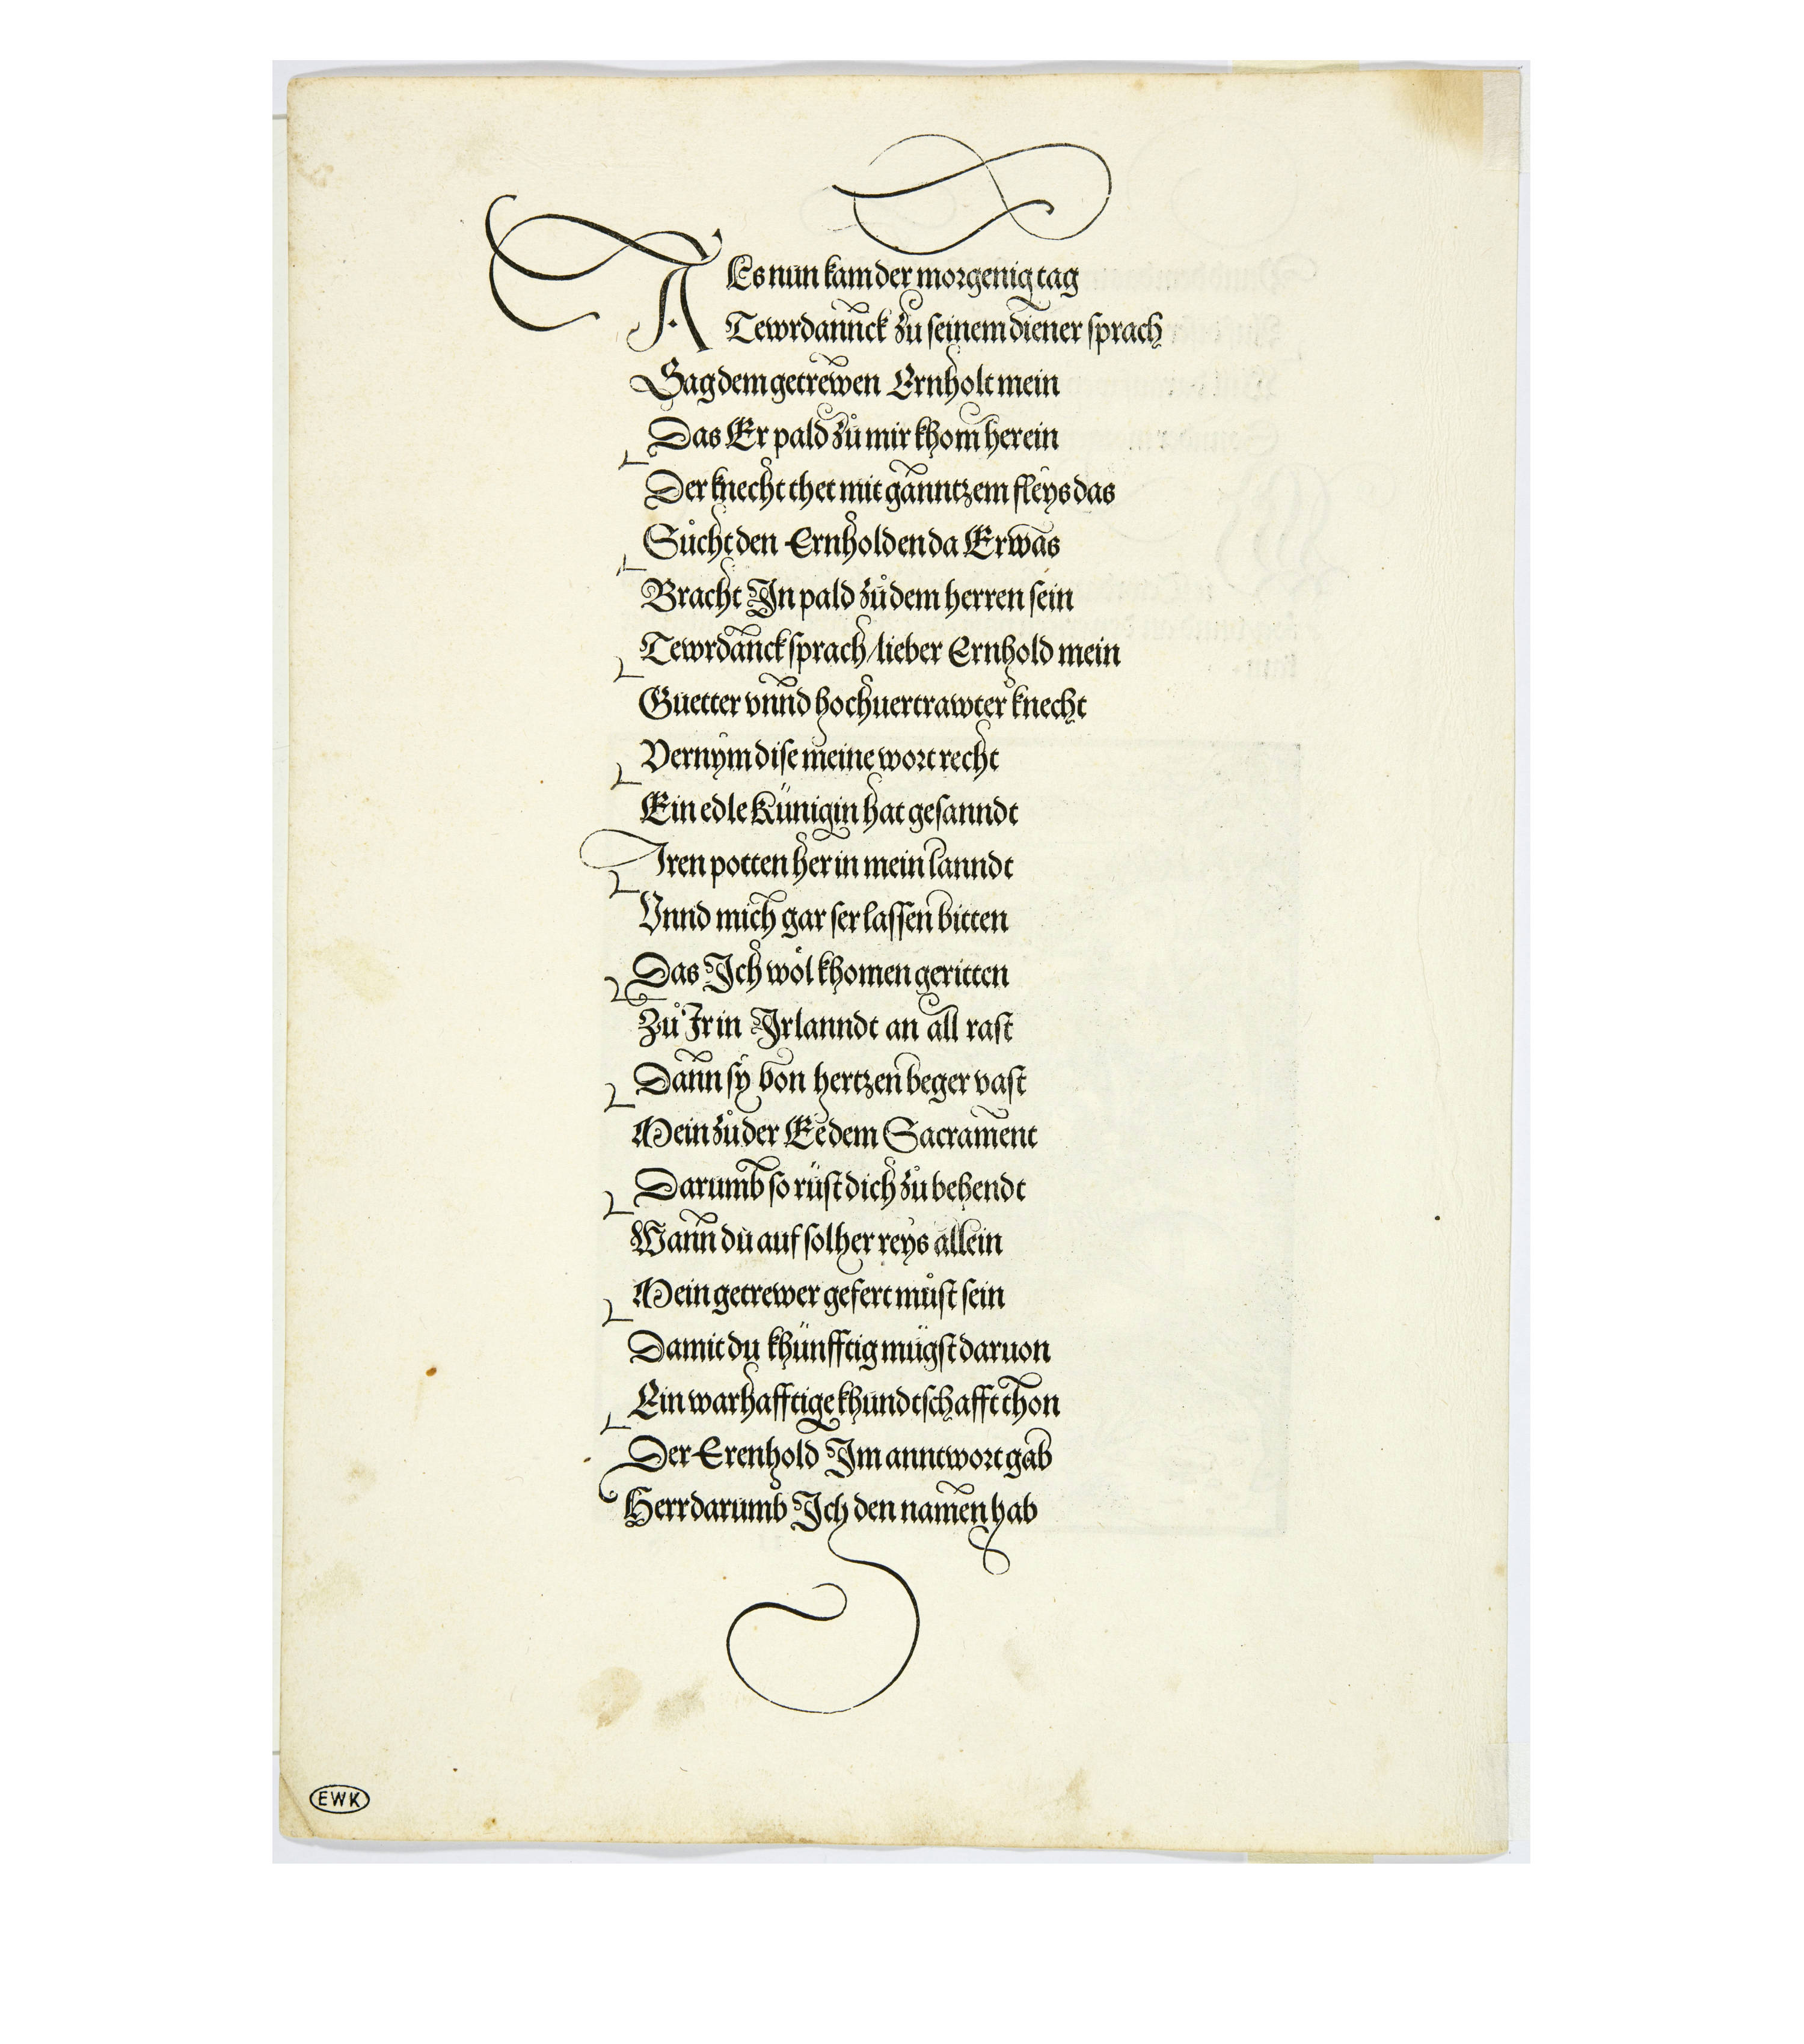 ALs nun kam der morgenig tag
Tewrdannck zu seinem diener sprach
Sag dem getrewen Ernholt mein
Das Er pald zů mir khom herein
Der knecht thet mit ganntzem fleys das
Sůcht den Ernholden da Er was
Bracht In pald zů dem herren sein
Tewrdanck sprach / lieber Ernhold mein
Guetter vnnd hochuertrawter knecht
Vernym dise meine wort recht
Ein edle Künigin hat gesanndt
Iren potten her in mein lanndt
Vnnd mich gar ser lassen bitten
Das Ich wöl khomen geritten
Zů Ir in Irlanndt an all rast
Dann sy von hertzen beger vast
Mein zů der Ee dem Sacrament
Darumb so rüst dich zů behendt
Wann du auf solher reys allein
Mein getrewer gefert můst sein
Damit du khünfftig mügst daruon
Ein warhafftige khundtschafft thon
Der Erenhold Im anntwort gab
Herr darumb Ich den namen hab
EWK